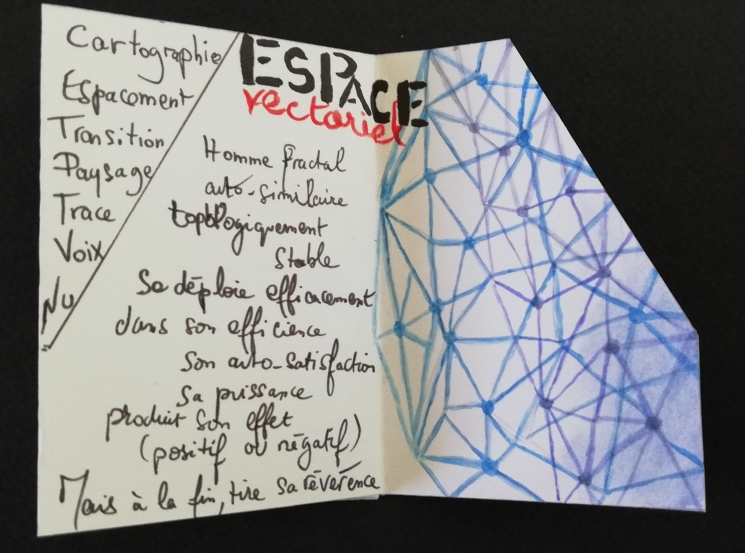 Cartographie
Espacement
Transition
Paysage
Trace
Voix
Nu
ESPACE
vectoriel
Homme fractal
auto-similaire
topologiquement
stable
Se déploie efficacement
dans son efficience
son auto-satisfaction
sa puissance
produit son effet
(positif ou négatif)
Mais à la fin, tire sa révérence